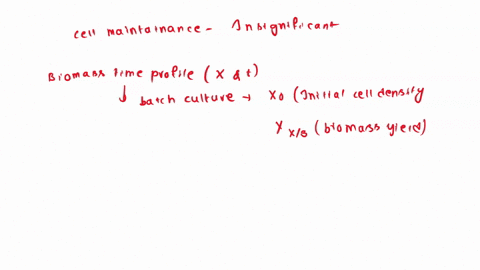 cell maintainance - Insignificant
Biomass time profile ( X & t )
↓ batch culture → X0 (Initial cell density
Y X/S ( biomass yield)